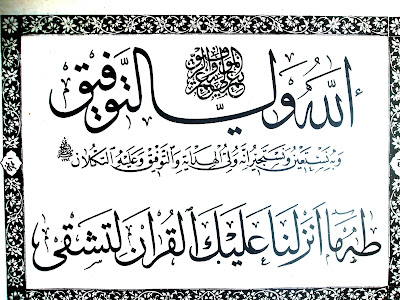 الله ولي التوفيق
وبه نستعين ونستجير إنه ولي الهداية والتوفيق وعليه التكلان
طه ما أنزلنا عليك القرآن لتشقى